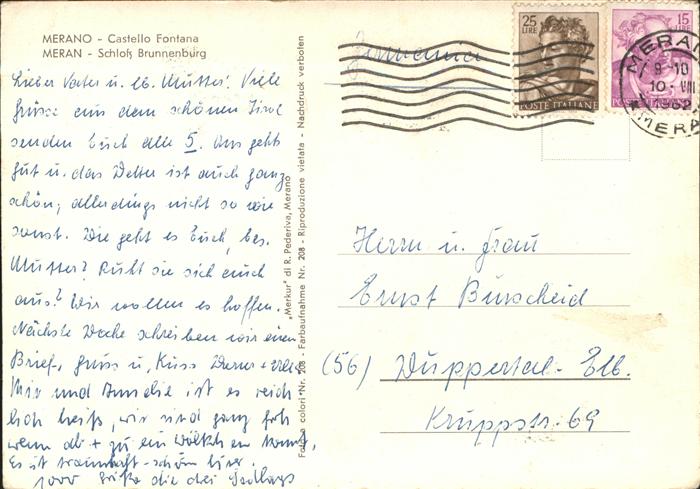 MERANO - Castello Fontana
MERAN - Schloß Brunnenburg
Lieber Vater u. lb. Mutter! Viele
Grüsse aus dem schönen Tirol
senden Euch alle 5. Uns geht's
gut u. das Wetter ist auch ganz
schön, allerdings nicht so wie
sonst. Wie geht es Euch, bes.
Mutter? Ruht sie sich auch
aus? Wir wollen es hoffen.
Nächste Woche schreiben wir einen
Brief. Gruss u. Kuss Werner +
Mir und ist es reich
lich heiß, wir sind ganz froh
wenn ab + zu ein Wölkchen kommt,
Es ist traumhaft-schön hier.
1000 die drei
"Merkur" di R. Pederiva, Merano
Fotos a colori Nr. 208 - Farbaufnahme Nr. 208 - Riproduzione vietata - Nachdruck verboten
Germania
25 LIRE
POSTE ITALIANE
15 LIRE
POSTE ITALIANE
MERANO
9-10
10 VIII
MERA
Herrn u. Frau
Ernst Burscheid
(56) Wuppertal-Elb.
Kruppstr. 69